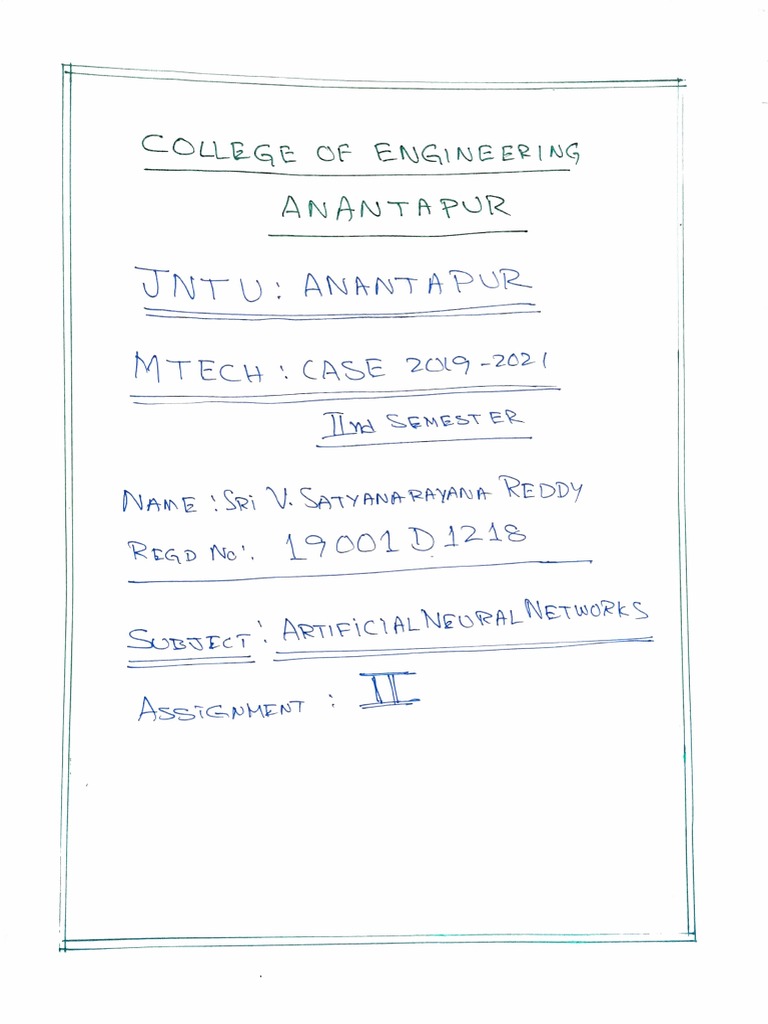 COLLEGE OF ENGINEERING
ANANTAPUR
JNTU: ANANTAPUR
MTECH: CASE 2019-2021
IInd SEMESTER
NAME: SRi V. SATYANARAYANA REDDY
REGD No: 19001D1218
SUBJECT: ARTIFICIAL NEURAL NETWORKS
ASSIGNMENT: II